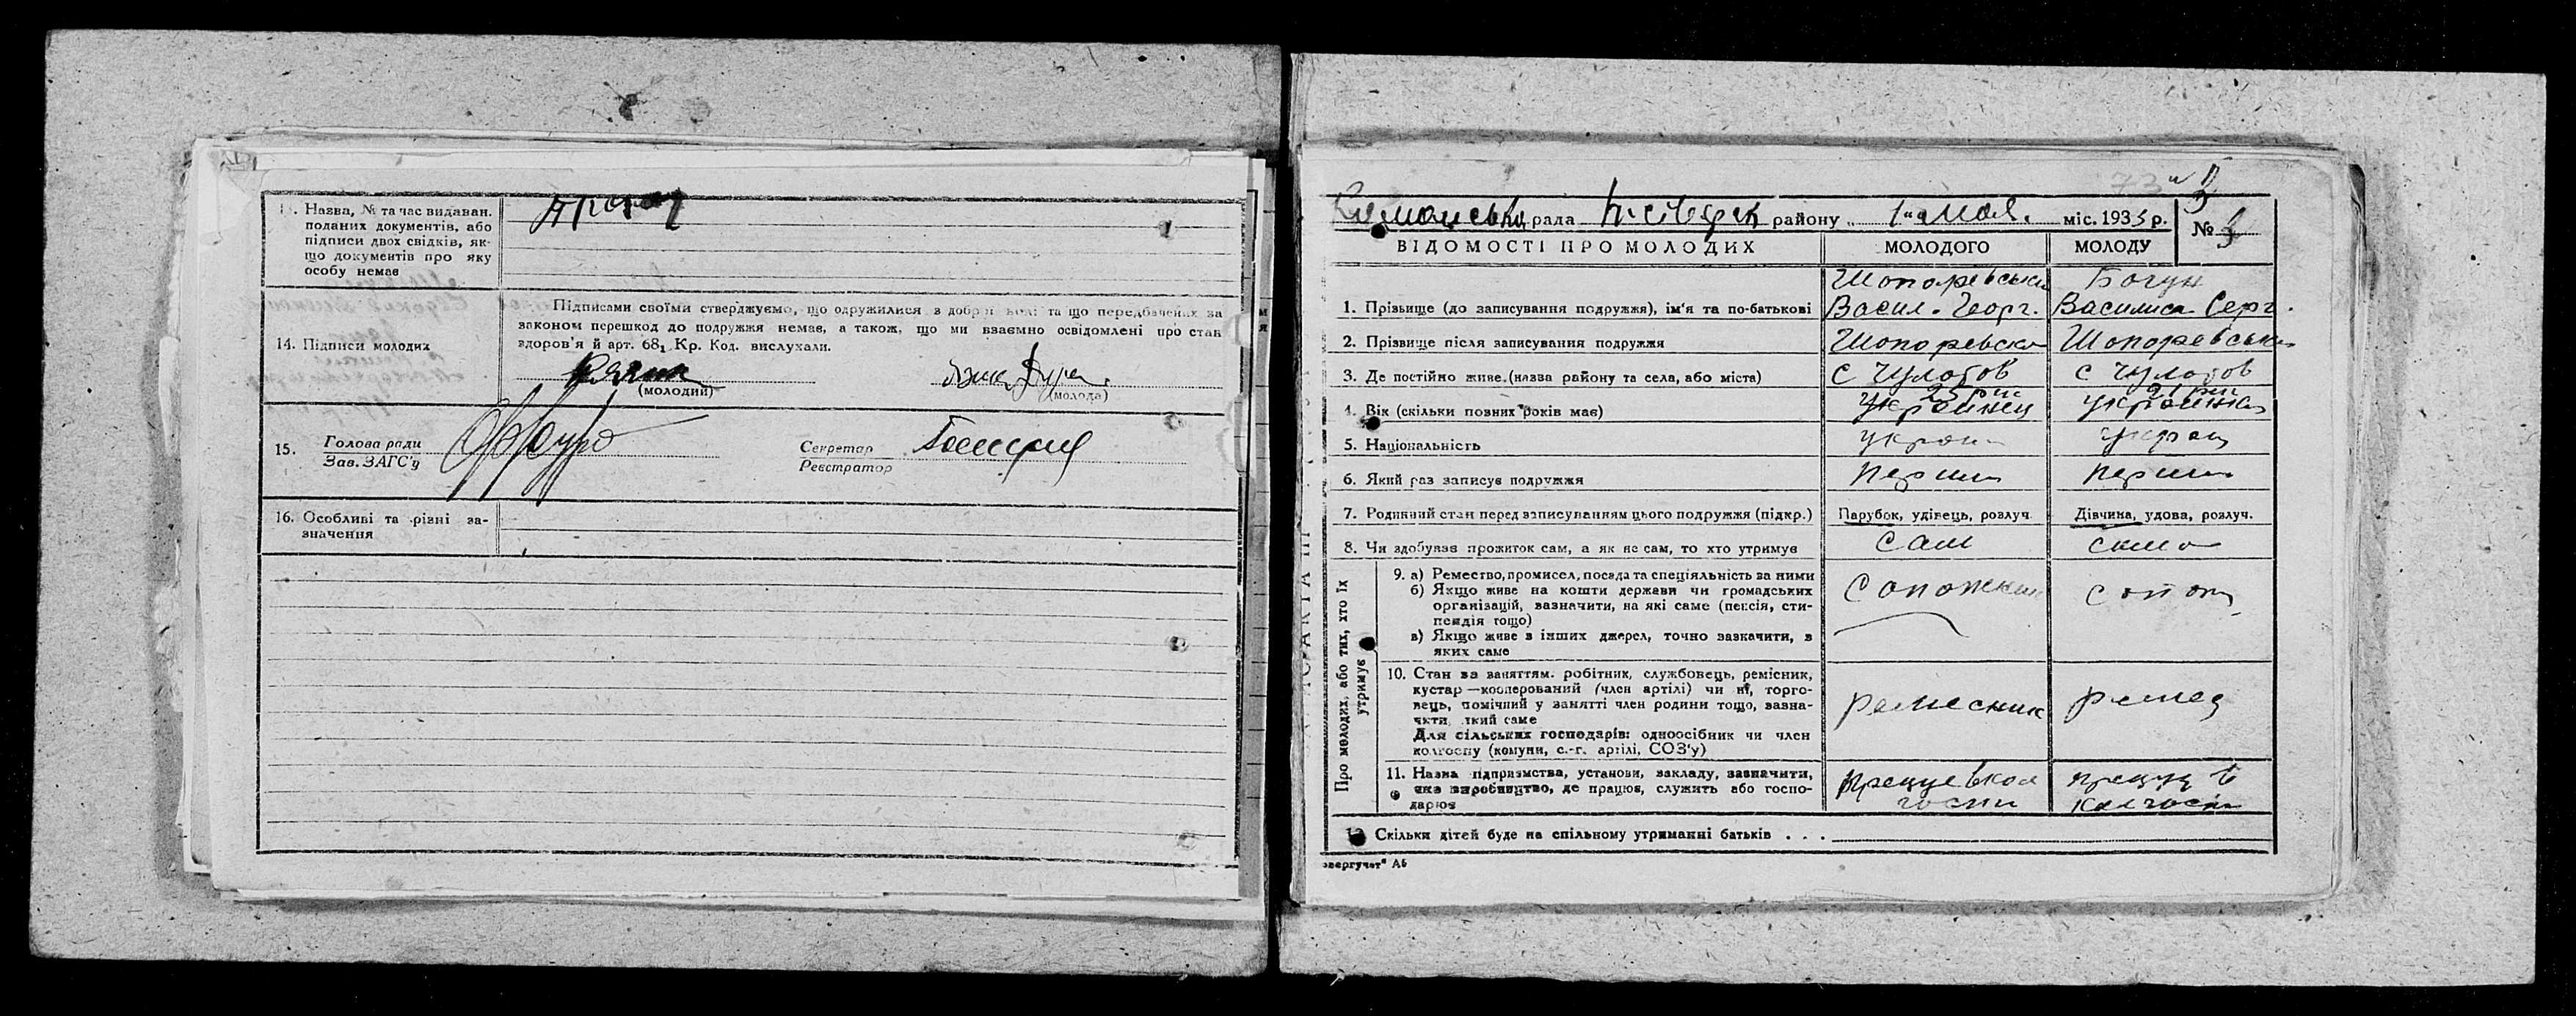 13. Назва, № та час видаван.
поданих документів, або
підписи двох свідків, як-
що документів про яку
особу немає
14. Підписи молодих
Підписами своїми стверджуємо, що одружилися з доброї волі та що передбачених за
законом перешкод до подружжя немає, а також, що ми взаємно освідомлені про стан
здоров'я й арт. 68₁ Кр. Код. вислухали.
(молодий)
(молода)
15. Голова ради
Зав. ЗАГС'у
Секретар
Реєстратор
16. Особливі та різні за-
значення
рада району „1“ мая. міс. 1933 р.
№
ВІДОМОСТІ ПРО МОЛОДИХ МОЛОДОГО МОЛОДУ
1. Прізвище (до записування подружжя), ім'я та по-батькові
Шопоревськи Васил. Георг.
Богун Василиса Серг.
2. Прізвище після записування подружжя Шопоревски Шопоревськи
3. Де постійно живе (назва району та села, або міста) с Чулатов с Чулатов
4. Вік (скільки повних років має) 25 21
українец українка
5. Національність украин украин
6. Який раз записує подружжя перши перши
7. Родинний стан перед записуванням цього подружжя (підкр.) Парубок, удівець, розлуч. Дівчина, удова, розлуч.
8. Чи здобував прожиток сам, а як не сам, то хто утримує сам сама
Про молодих, або тих, хто їх утримує
9. а) Ремество, промисел, посада та спеціяльність за ними
б) Якщо живе на кошти держави чи громадських
організацій, зазначити, на які саме (пенсія, сти-
пендія тощо)
в) Якщо живе з інших джерел, точно зазначити, з
яких саме
Сапожник сапож
10. Стан за заняттям: робітник, службовець, ремісник,
кустар—кооперований (член артілі) чи ні, торго-
вець, помічний у занятті член родини тощо, зазна-
чити, який саме
Для сільських господарів: одноосібник чи член
колгоспу (комуни, с.-г. артілі, СОЗ'у)
ремесник ремес
11. Назва підприємства, установи, закладу, зазначити,
яке виробництво, де працює, служить або госпо-
дарює
працуе в кол
госпи
працуе в
колгоспи
12. Скільки дітей буде на спільному утриманні батьків . . .